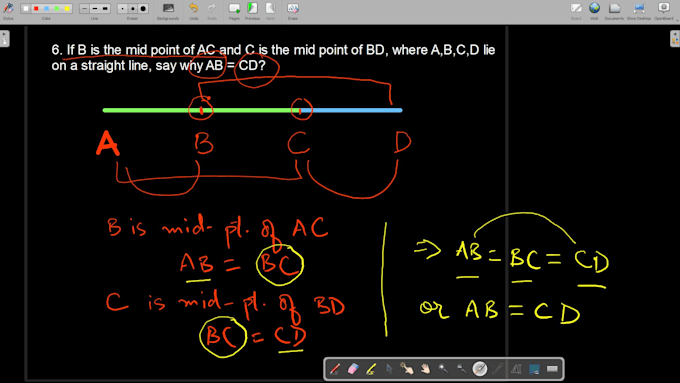 Stylus
Color
Line
Eraser
Backgrounds
Undo
Pages
Previous
Next
Erase
Web
Documents
Show Desktop
6. If B is the mid point of AC and C is the mid point of BD, where A,B,C,D lie
on a straight line, say why AB = CD?
A B C D
B is mid-pt. of AC
AB = BC
C is mid-pt. of BD
BC = CD
⇒ AB = BC = CD
or AB = CD